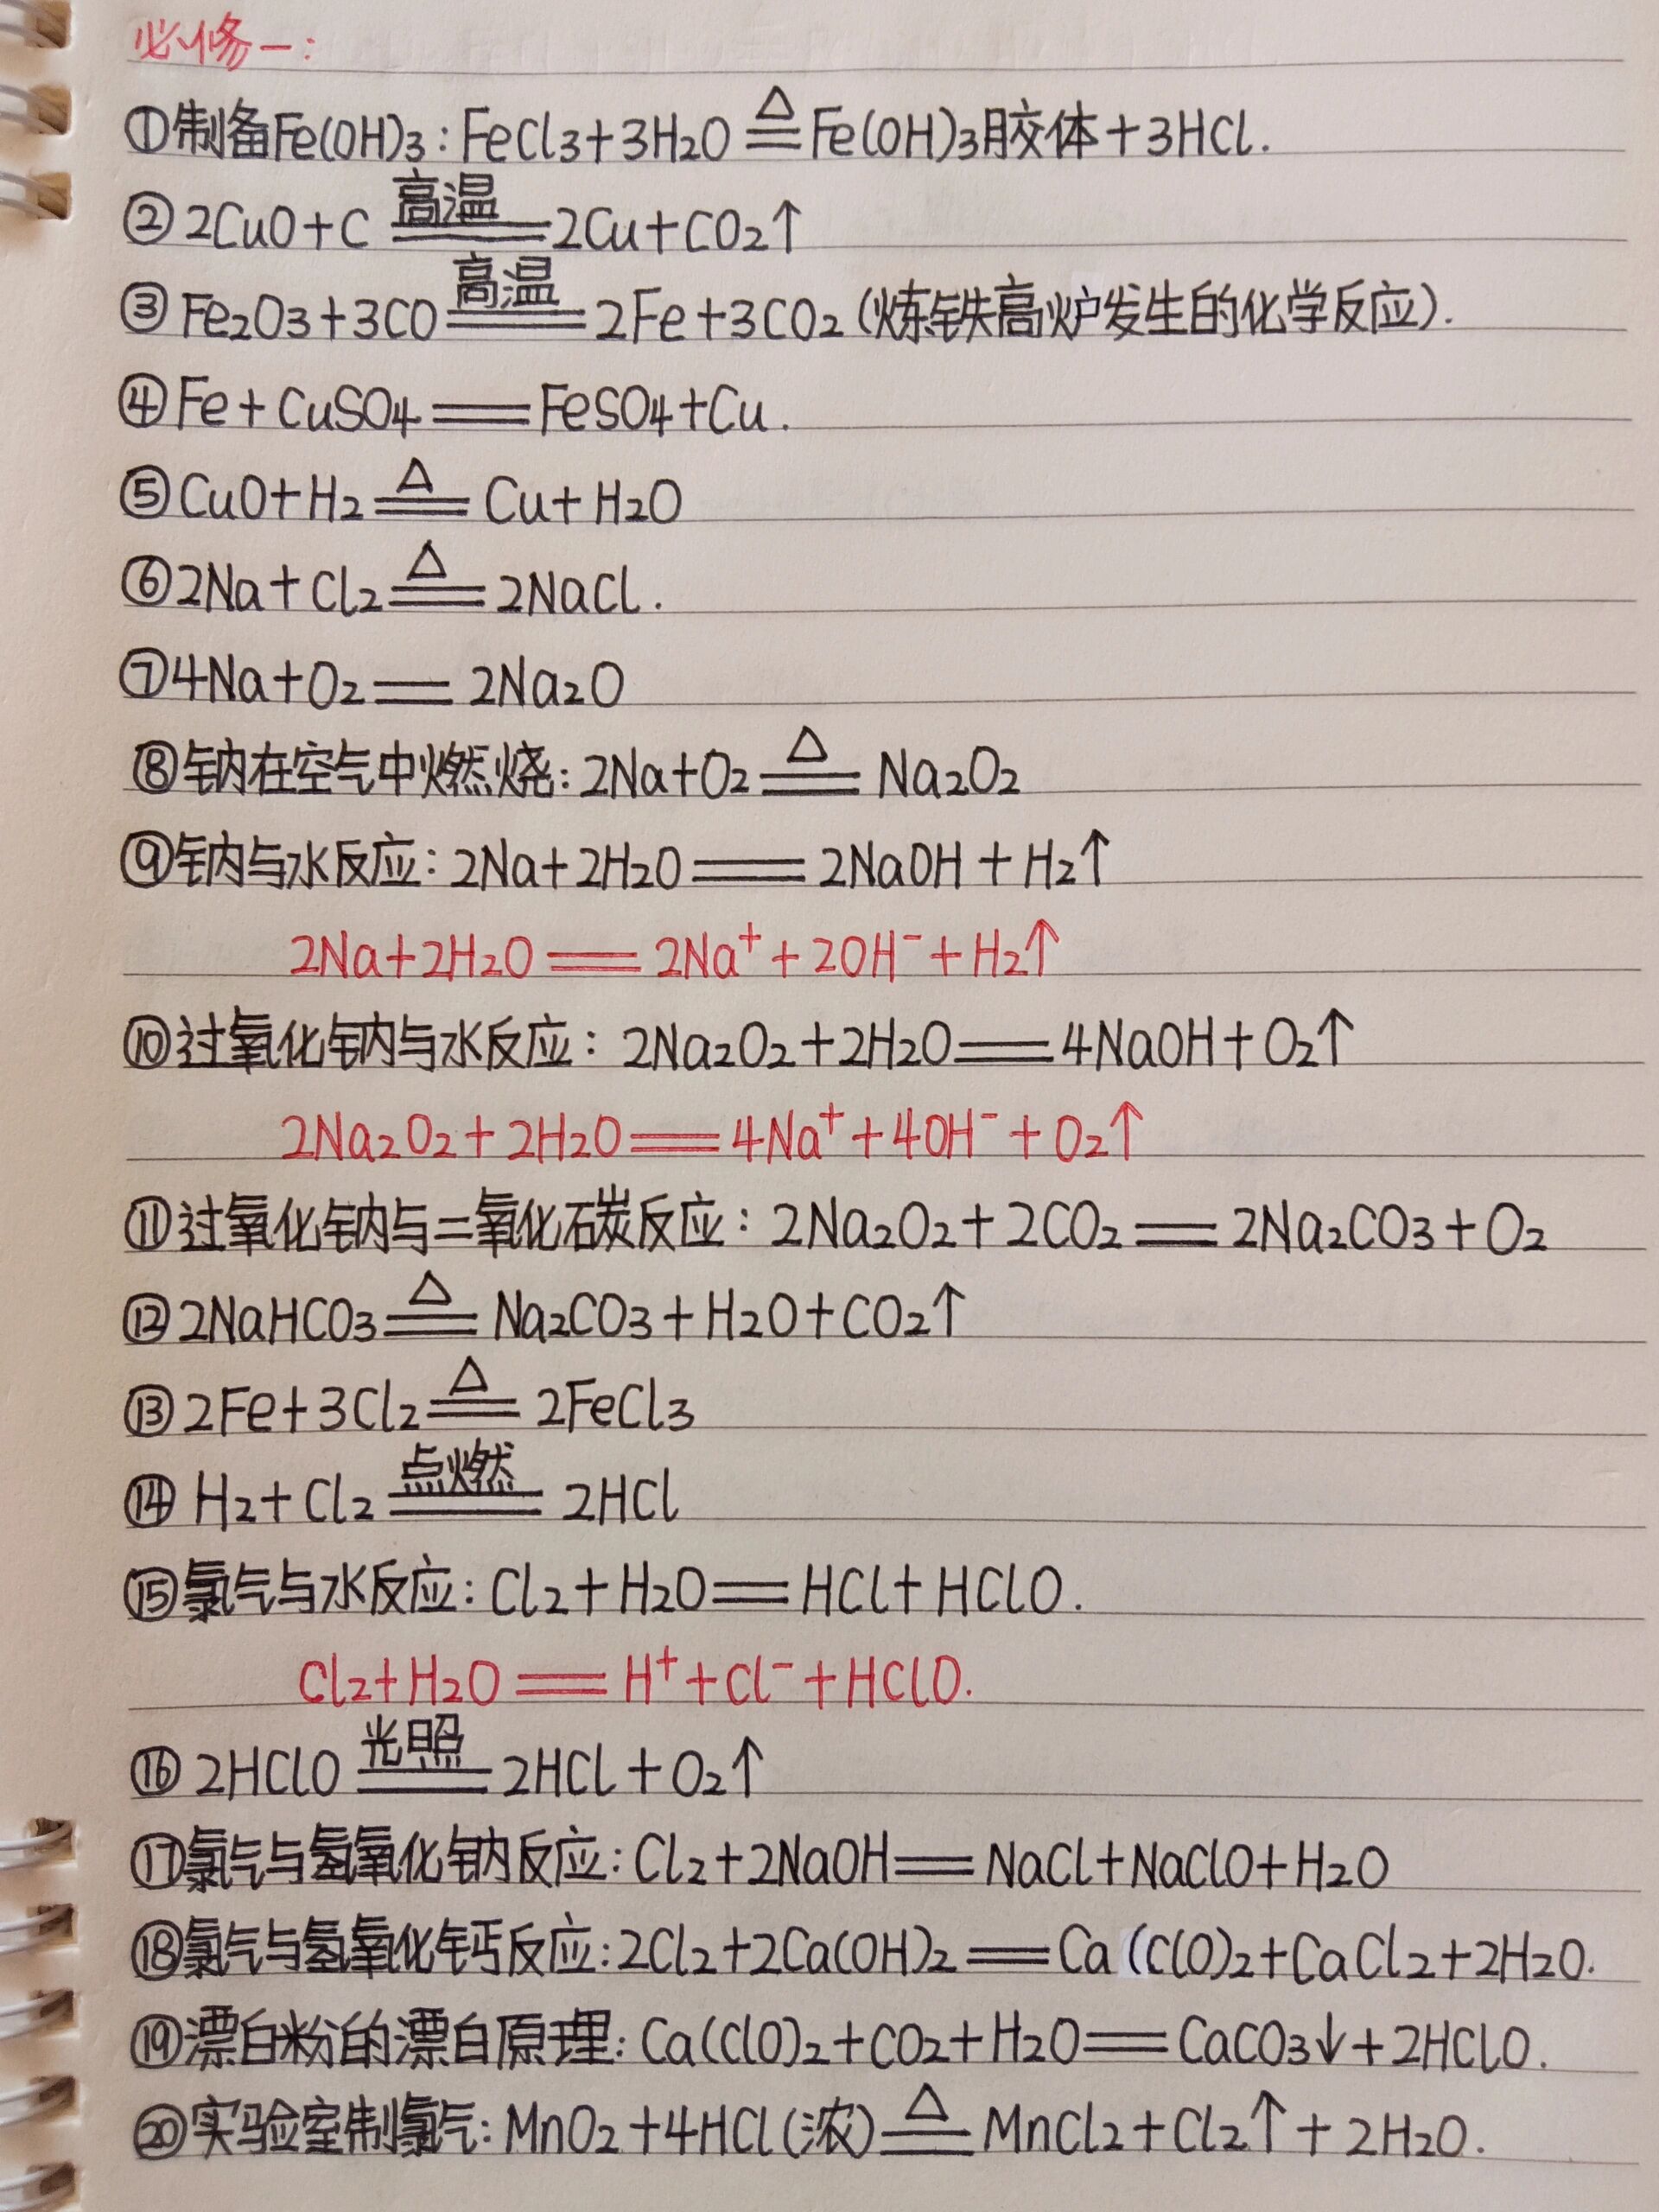 必修一:
①制备Fe(OH)₃:FeCl₃+3H₂O ≜ Fe(OH)₃胶体+3HCl.
②2CuO+C 高温══ 2Cu+CO₂↑
③Fe₂O₃+3CO 高温══ 2Fe+3CO₂(炼铁高炉发生的化学反应).
④Fe+CuSO₄══FeSO₄+Cu.
⑤CuO+H₂ ≜ Cu+H₂O
⑥2Na+Cl₂ ≜ 2NaCl.
⑦4Na+O₂══2Na₂O
⑧钠在空气中燃烧:2Na+O₂ ≜ Na₂O₂
⑨钠与水反应:2Na+2H₂O══2NaOH+H₂↑
2Na+2H₂O══2Na⁺+2OH⁻+H₂↑
⑩过氧化钠与水反应:2Na₂O₂+2H₂O══4NaOH+O₂↑
2Na₂O₂+2H₂O══4Na⁺+4OH⁻+O₂↑
⑪过氧化钠与二氧化碳反应:2Na₂O₂+2CO₂══2Na₂CO₃+O₂
⑫2NaHCO₃ ≜ Na₂CO₃+H₂O+CO₂↑
⑬2Fe+3Cl₂ ≜ 2FeCl₃
⑭H₂+Cl₂ 点燃══ 2HCl
⑮氯气与水反应:Cl₂+H₂O══HCl+HClO.
Cl₂+H₂O══H⁺+Cl⁻+HClO.
⑯2HClO 光照══ 2HCl+O₂↑
⑰氯气与氢氧化钠反应:Cl₂+2NaOH══NaCl+NaClO+H₂O
⑱氯气与氢氧化钙反应:2Cl₂+2Ca(OH)₂══Ca(ClO)₂+CaCl₂+2H₂O.
⑲漂白粉的漂白原理:Ca(ClO)₂+CO₂+H₂O══CaCO₃↓+2HClO.
⑳实验室制氯气:MnO₂+4HCl(浓) ≜ MnCl₂+Cl₂↑+2H₂O.